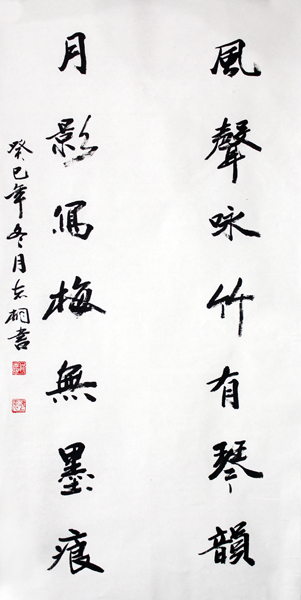 風聲咏竹有琴韻
月影寫梅無墨痕
癸巳年冬月志桐書